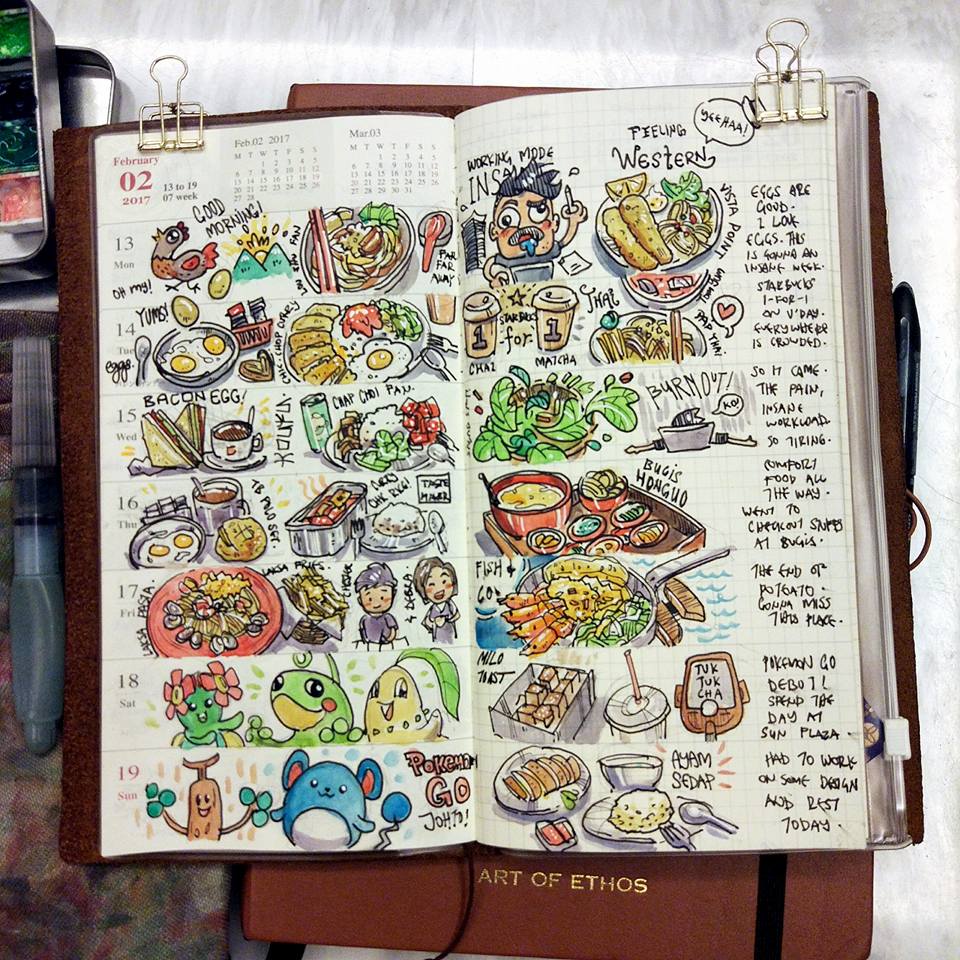 February
02
2017
13 to 19
07 week
Feb.02 2017
M T W T F S S
1 2 3 4 5
6 7 8 9 10 11 12
13 14 15 16 17 18 19
20 21 22 23 24 25 26
27 28
Mar.03
M T W T F S S
1 2 3 4 5
6 7 8 9 10 11 12
13 14 15 16 17 18 19
20 21 22 23 24 25 26
27 28 29 30 31
13
Mon
GOOD
MORNING!
OH MY!
FAR
FAR
AWAY
14
Tue
YUMS!
eggs.
15
Wed
BACON EGG!
CHAP CHOI PAN.
16
Thu
TASTE
MAKER
17
Fri
LAKSA PASTA
LAKSA FRIES.
CHESTER
& DEBRA
18
Sat
19
Sun
POKEMON
GO
JOHTO!
WORKING MODE
INSANE
FEELING
WESTERN
YEEHAA!
VISTA POINT
TOM YUM
EGGS ARE
GOOD.
I LOVE
EGGS. THIS
IS GONNA AN
INSANE WEEK.
STARBUCKS
1 for 1
CHAI
MATCHA
THAI
PAD THAI
STARBUCKS
1-FOR-1
ON V'DAY.
EVERYWHERE
IS CROWDED.
BURNOUT!
KO!
SO IT CAME.
THE PAIN,
INSANE
WORKLOAD.
SO TIRING.
BUGIS
HONGUO
COMFORT
FOOD ALL
THE WAY.
WENT TO
CHECKOUT
AT BUGIS.
FISH &
CO.
THE END OF
POTEATO.
GONNA MISS
THIS PLACE.
MILO
TOAST
TUK
TUK
CHA
POKEMON GO
DEBUT!
SPEND THE
DAY AT
SUN PLAZA.
AYAM
SEDAP
HAD TO WORK
ON SOME DESIGN
AND REST
TODAY.
ART OF ETHOS